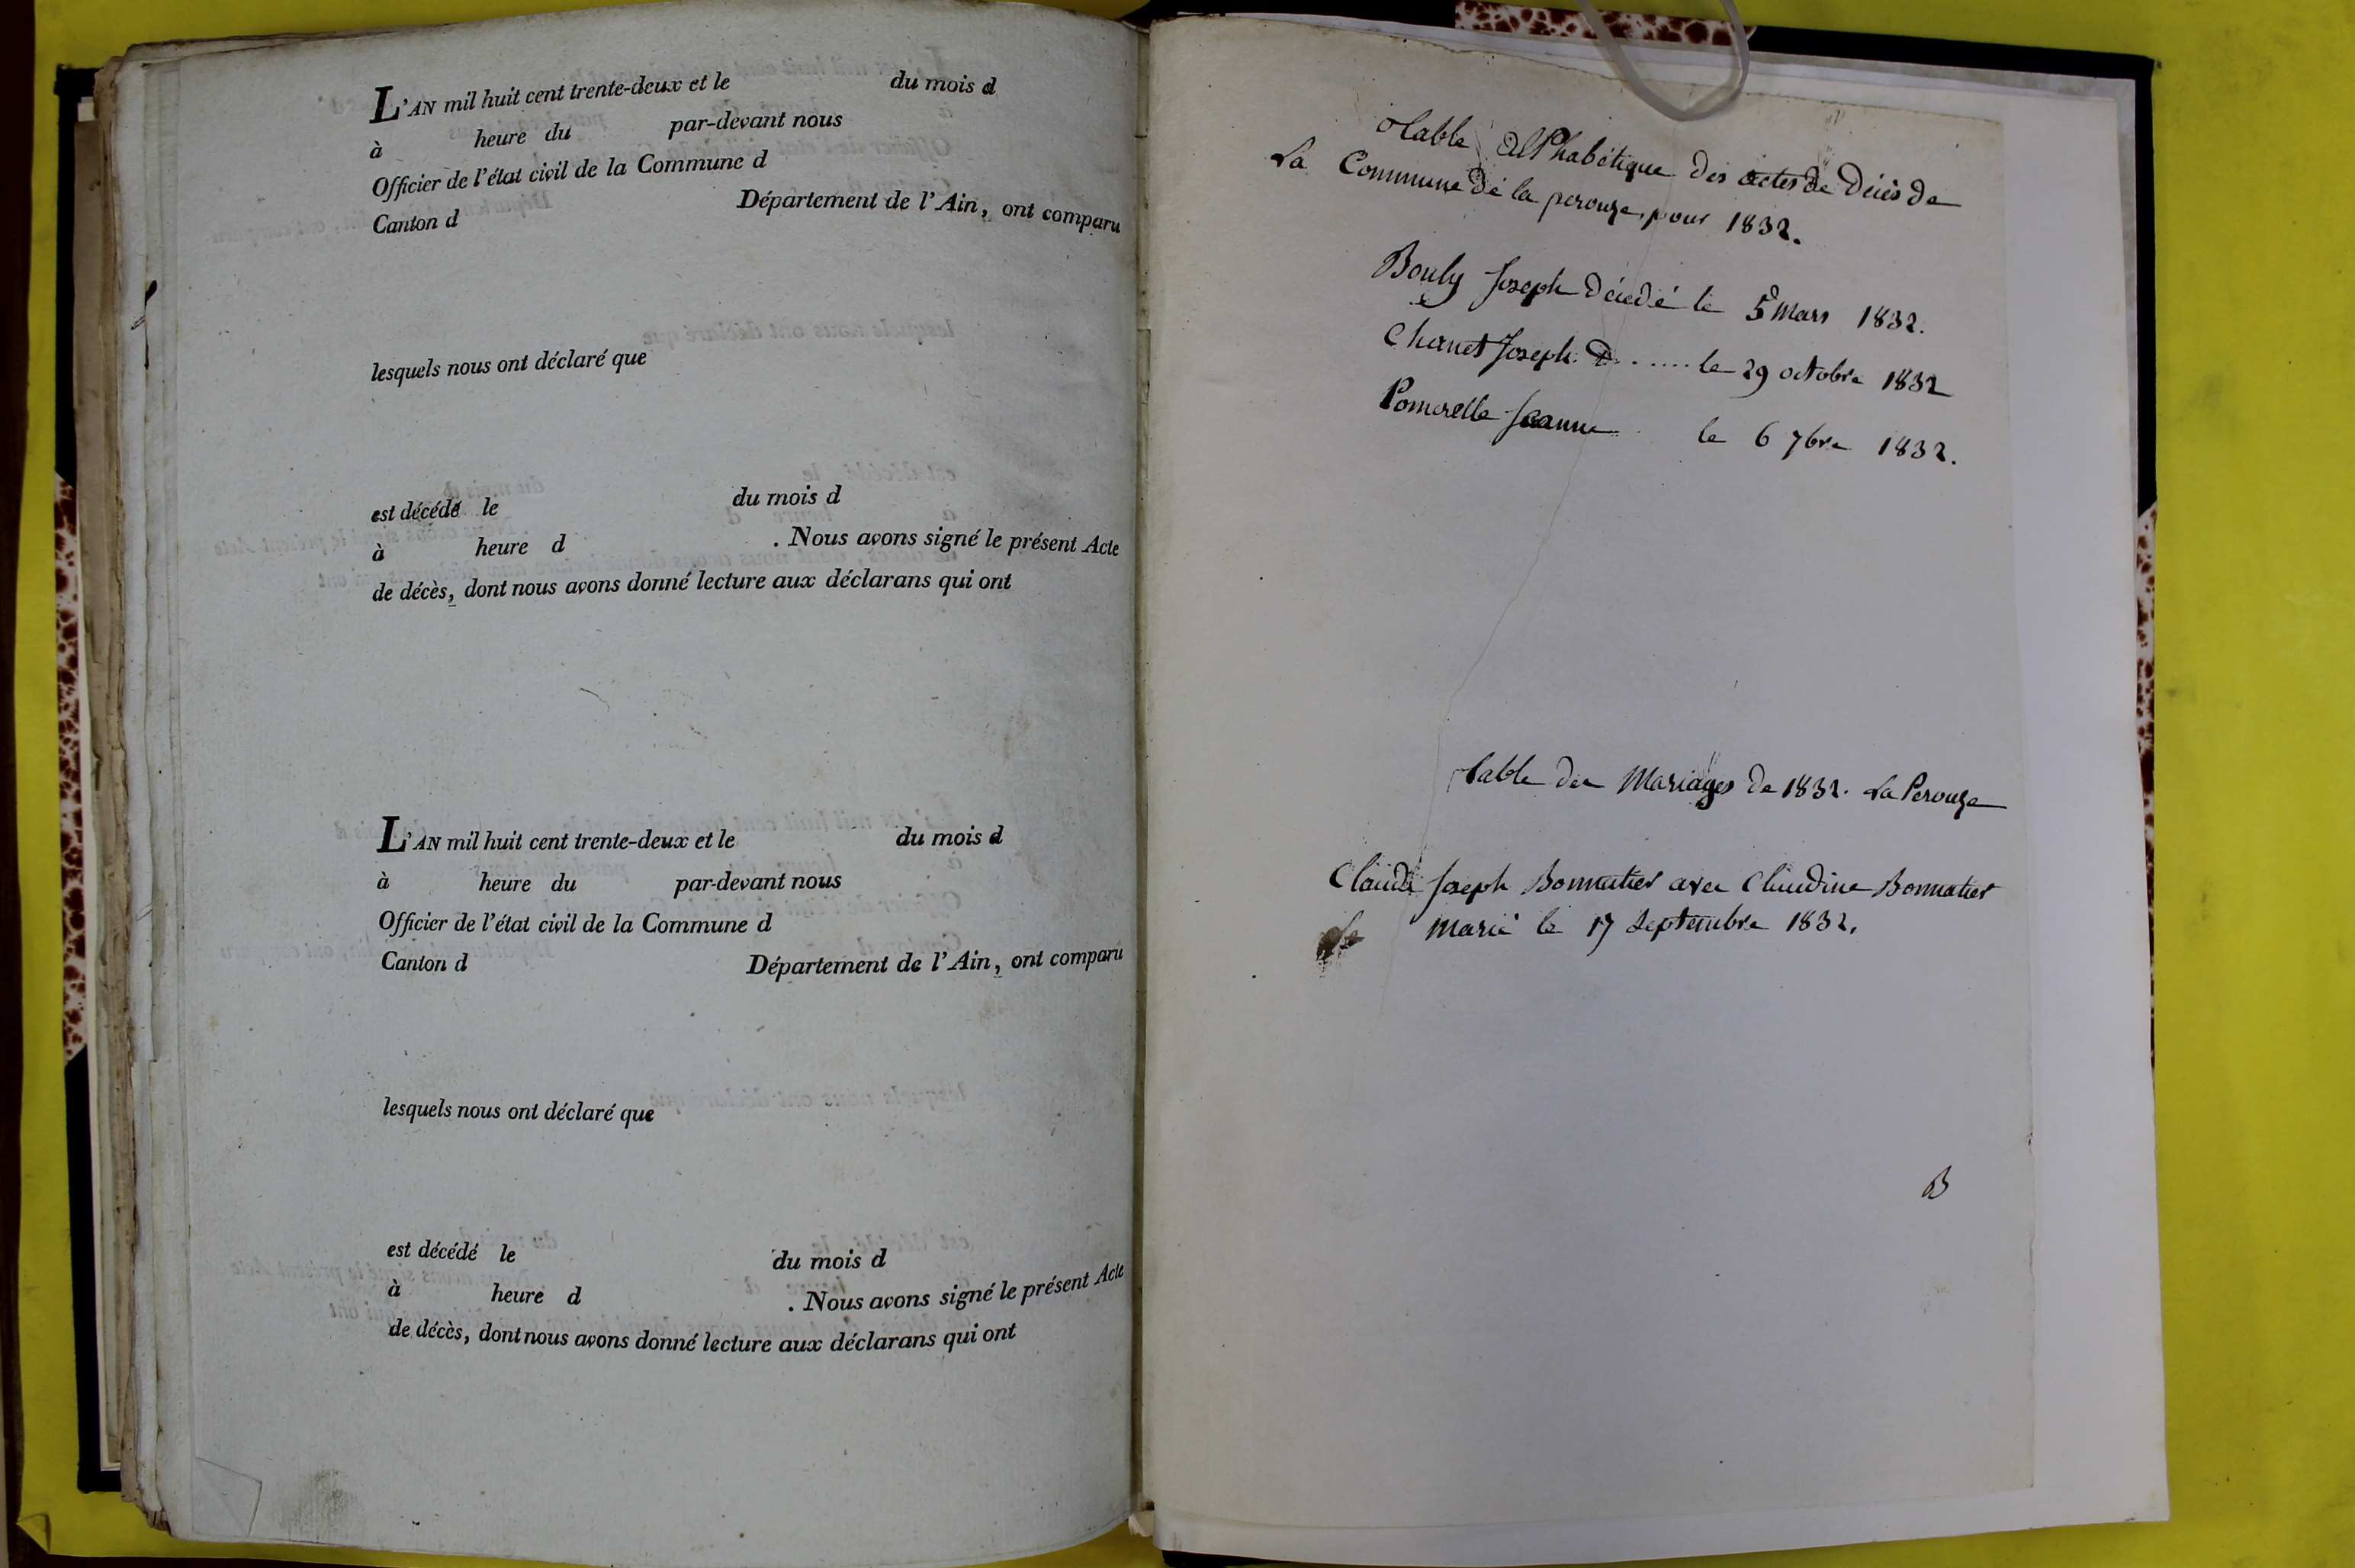 L'AN mil huit cent trente-deux et le du mois d
à heure du par-devant nous
Officier de l'état civil de la Commune d
Canton d Département de l'Ain, ont comparu
lesquels nous ont déclaré que
est décédé le du mois d
à heure d . Nous avons signé le présent Acte
de décès, dont nous avons donné lecture aux déclarans qui ont
L'AN mil huit cent trente-deux et le du mois d
à heure du par-devant nous
Officier de l'état civil de la Commune d
Canton d Département de l'Ain, ont comparu
lesquels nous ont déclaré que
est décédé le du mois d
à heure d . Nous avons signé le présent Acte
de décès, dont nous avons donné lecture aux déclarans qui ont
Table AlPhabétique des actes de Décès de
La Commune de la perouze, pour 1832.
Bouly Joseph décédé le 5 Mars 1832.
Chanet Joseph. D ...... le 29 octobre 1832
Pomerelle Jeanne le 6 7bre 1832.
Table des Mariages de 1832. La Perouze
Claude Joseph Bonnatier avec Claudine Bonnatier
marié le 17 Septembre 1832.
B